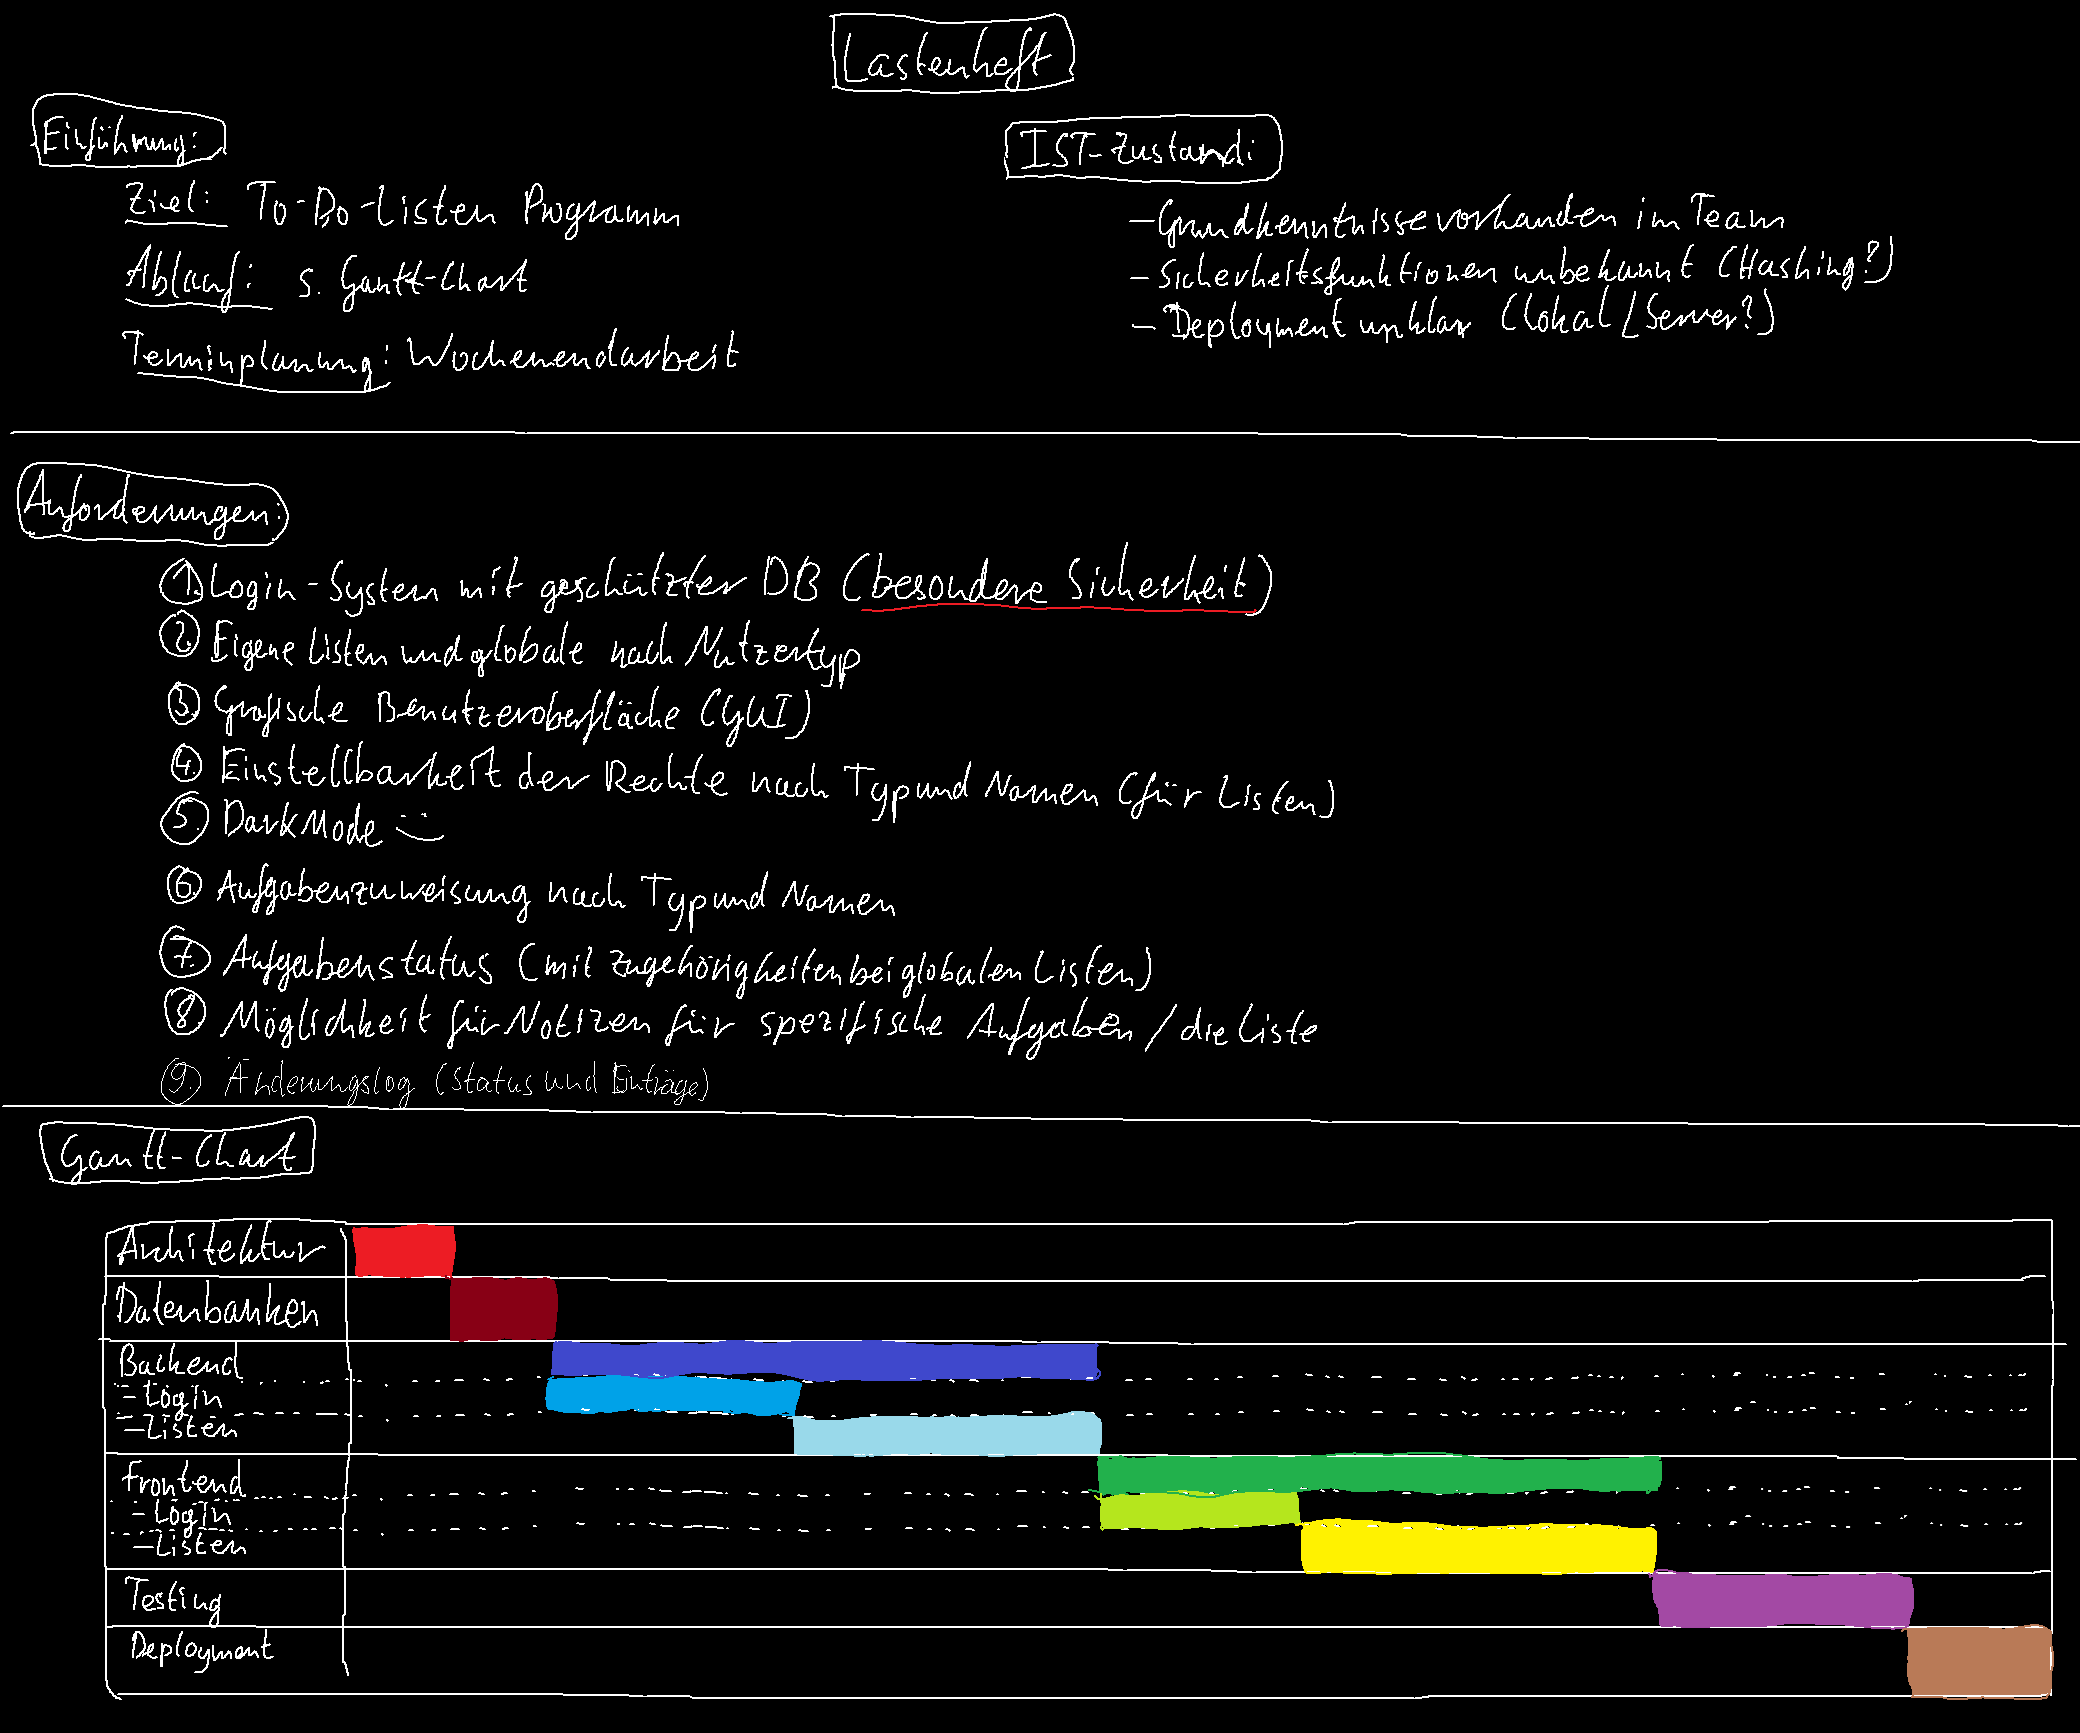 Lastenheft
Einführung:
Ziel: To-Do-Listen Programm
Ablauf: s. Gantt-Chart
Terminplanung: Wochenendarbeit
IST-Zustand:
- Grundkenntnisse vorhanden im Team
- Sicherheitsfunktionen unbekannt (Hashing?)
- Deployment unklar (lokal/Server?)
Anforderungen:
1. Login-System mit geschützter DB (besondere Sicherheit)
2. Eigene Listen und globale nach Nutzertyp
3. Grafische Benutzeroberfläche (GUI)
4. Einstellbarkeit der Rechte nach Typ und Namen (für Listen)
5. DarkMode :)
6. Aufgabenzuweisung nach Typ und Namen
7. Aufgabenstatus (mit Zugehörigkeiten bei globalen Listen)
8. Möglichkeit für Notizen für spezifische Aufgaben / die Liste
9. Änderungslog (Status und Einträge)
Gantt-Chart
Architektur
Datenbanken
Backend
- Login
- Listen
Frontend
- Login
- Listen
Testing
Deployment